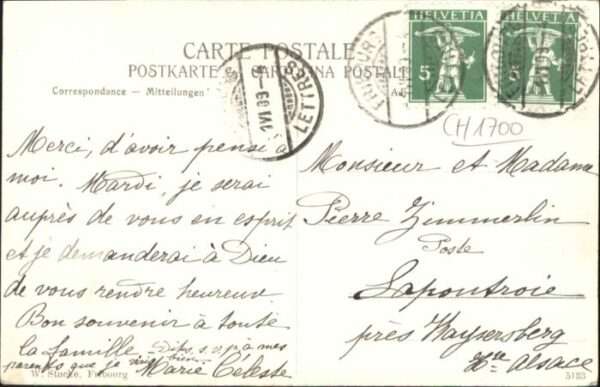 CARTE POSTALE
POSTKARTE
CARTOLINA POSTALE
Correspondance — Mitteilungen
HELVETIA
5
HELVETIA
5
FRIBOURG
LETTRES
VI 09
LETTRES
CH 1700
Merci, d'avoir pensé à
moi. Mardi, je serai
auprès de vous en esprit
et je demanderai à Dieu
de vous rendre heureux.
Bon souvenir à toute
la famille. Dites, s.v.p. à mes
parents que je vais bien.
Marie Céleste
W. Stucke. Fribourg
Monsieur et Madame
Pierre Zimmerlin
Poste
Lapoutroie
près Kaysersberg
Hte Alsace
5123